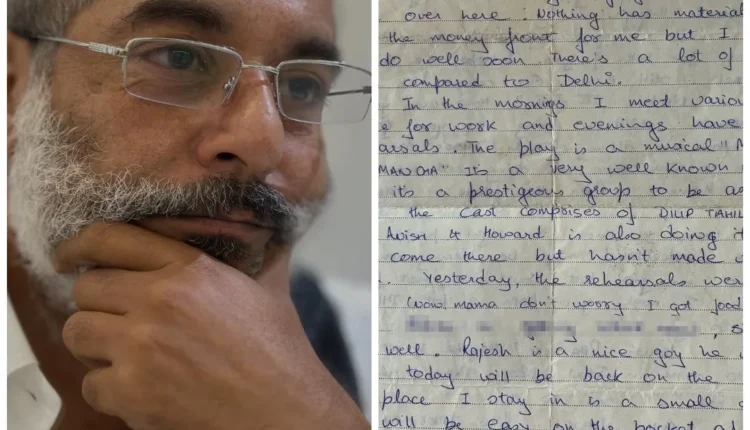 over here. Nothing has material
the money front for me but I
do well soon There's a lot of
compared to Delhi.
In the mornings I meet variou
e for work and evenings have
arsals. The play is a musical "M
MANCHA" Its a very well known
its a prestigeous group to be as
the cast comprises of DILIP TAHIL
Avish & Howard is also doing it
come there but hasn't made
. Yesterday, the rehearsals wer
(wow. mama don't worry I got food
, s
well. Rajesh is a nice guy he
today will be back on the
place I stay in is a small
will be easy on the pocket al